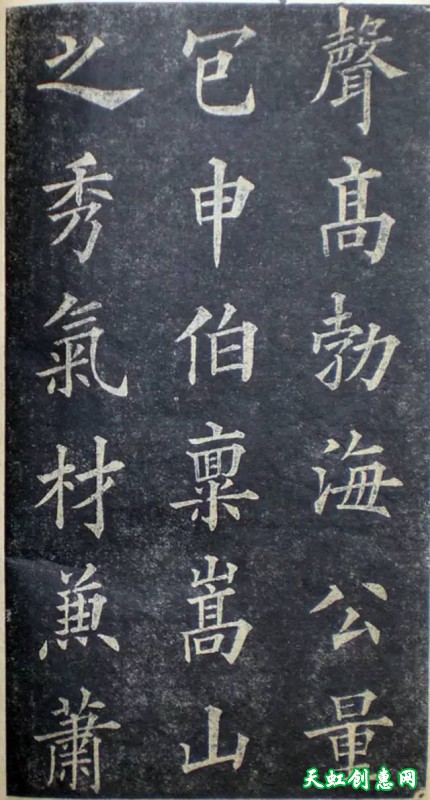 聲髙勃海公量
包申伯稟嵩山
之秀氣材兼蕭
天虹创惠网